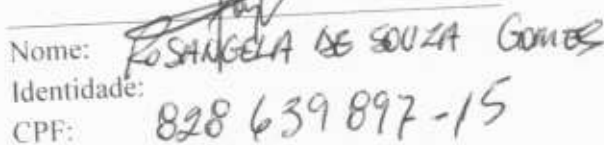 Nome: ROSANGELA DE SOUZA GOMES
Identidade:
CPF: 828 639 897-15